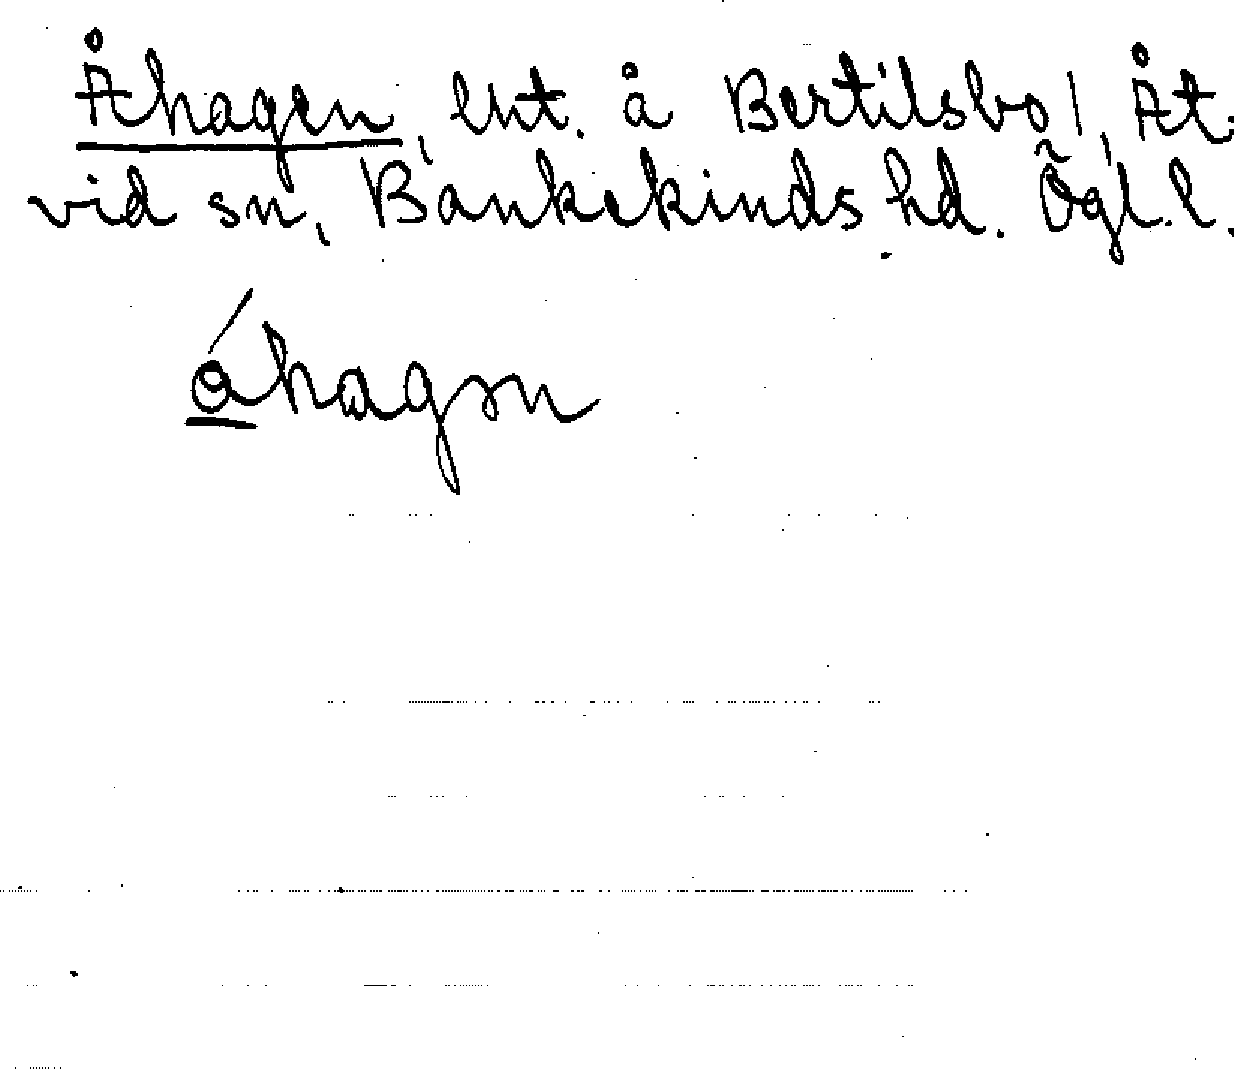 Åhagen, lht. å Bertilsbo, Åt-
vid sn, Bankekinds hd. Ögl. l.
åhagən